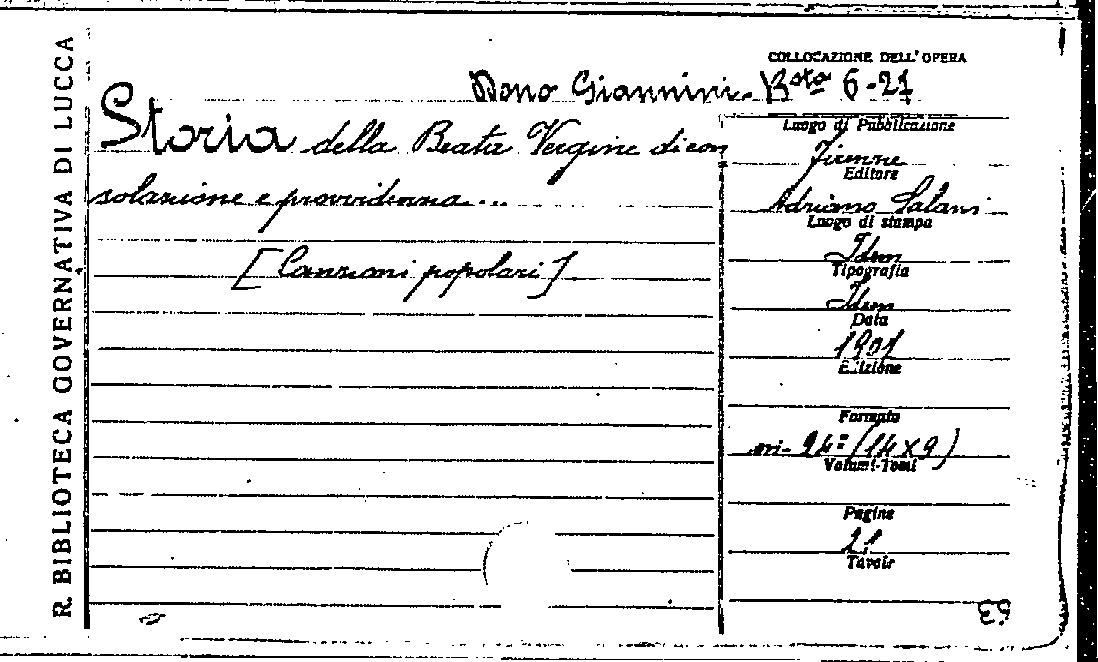 R. BIBLIOTECA GOVERNATIVA DI LUCCA
COLLOCAZIONE DELL'OPERA
Dono Giannini. Bsta 6-27
Storia della Beata Vergine di con
solazione e provvidenza...
[Canzoni popolari]
Luogo di Pubblicazione
Firenze
Editore
Adriano Salani
Luogo di stampa
Idem
Tipografia
Idem
Data
1901
Edizione
Formato
24º (14x9)
Volumi-Tomi
Pagine
Tavole
63